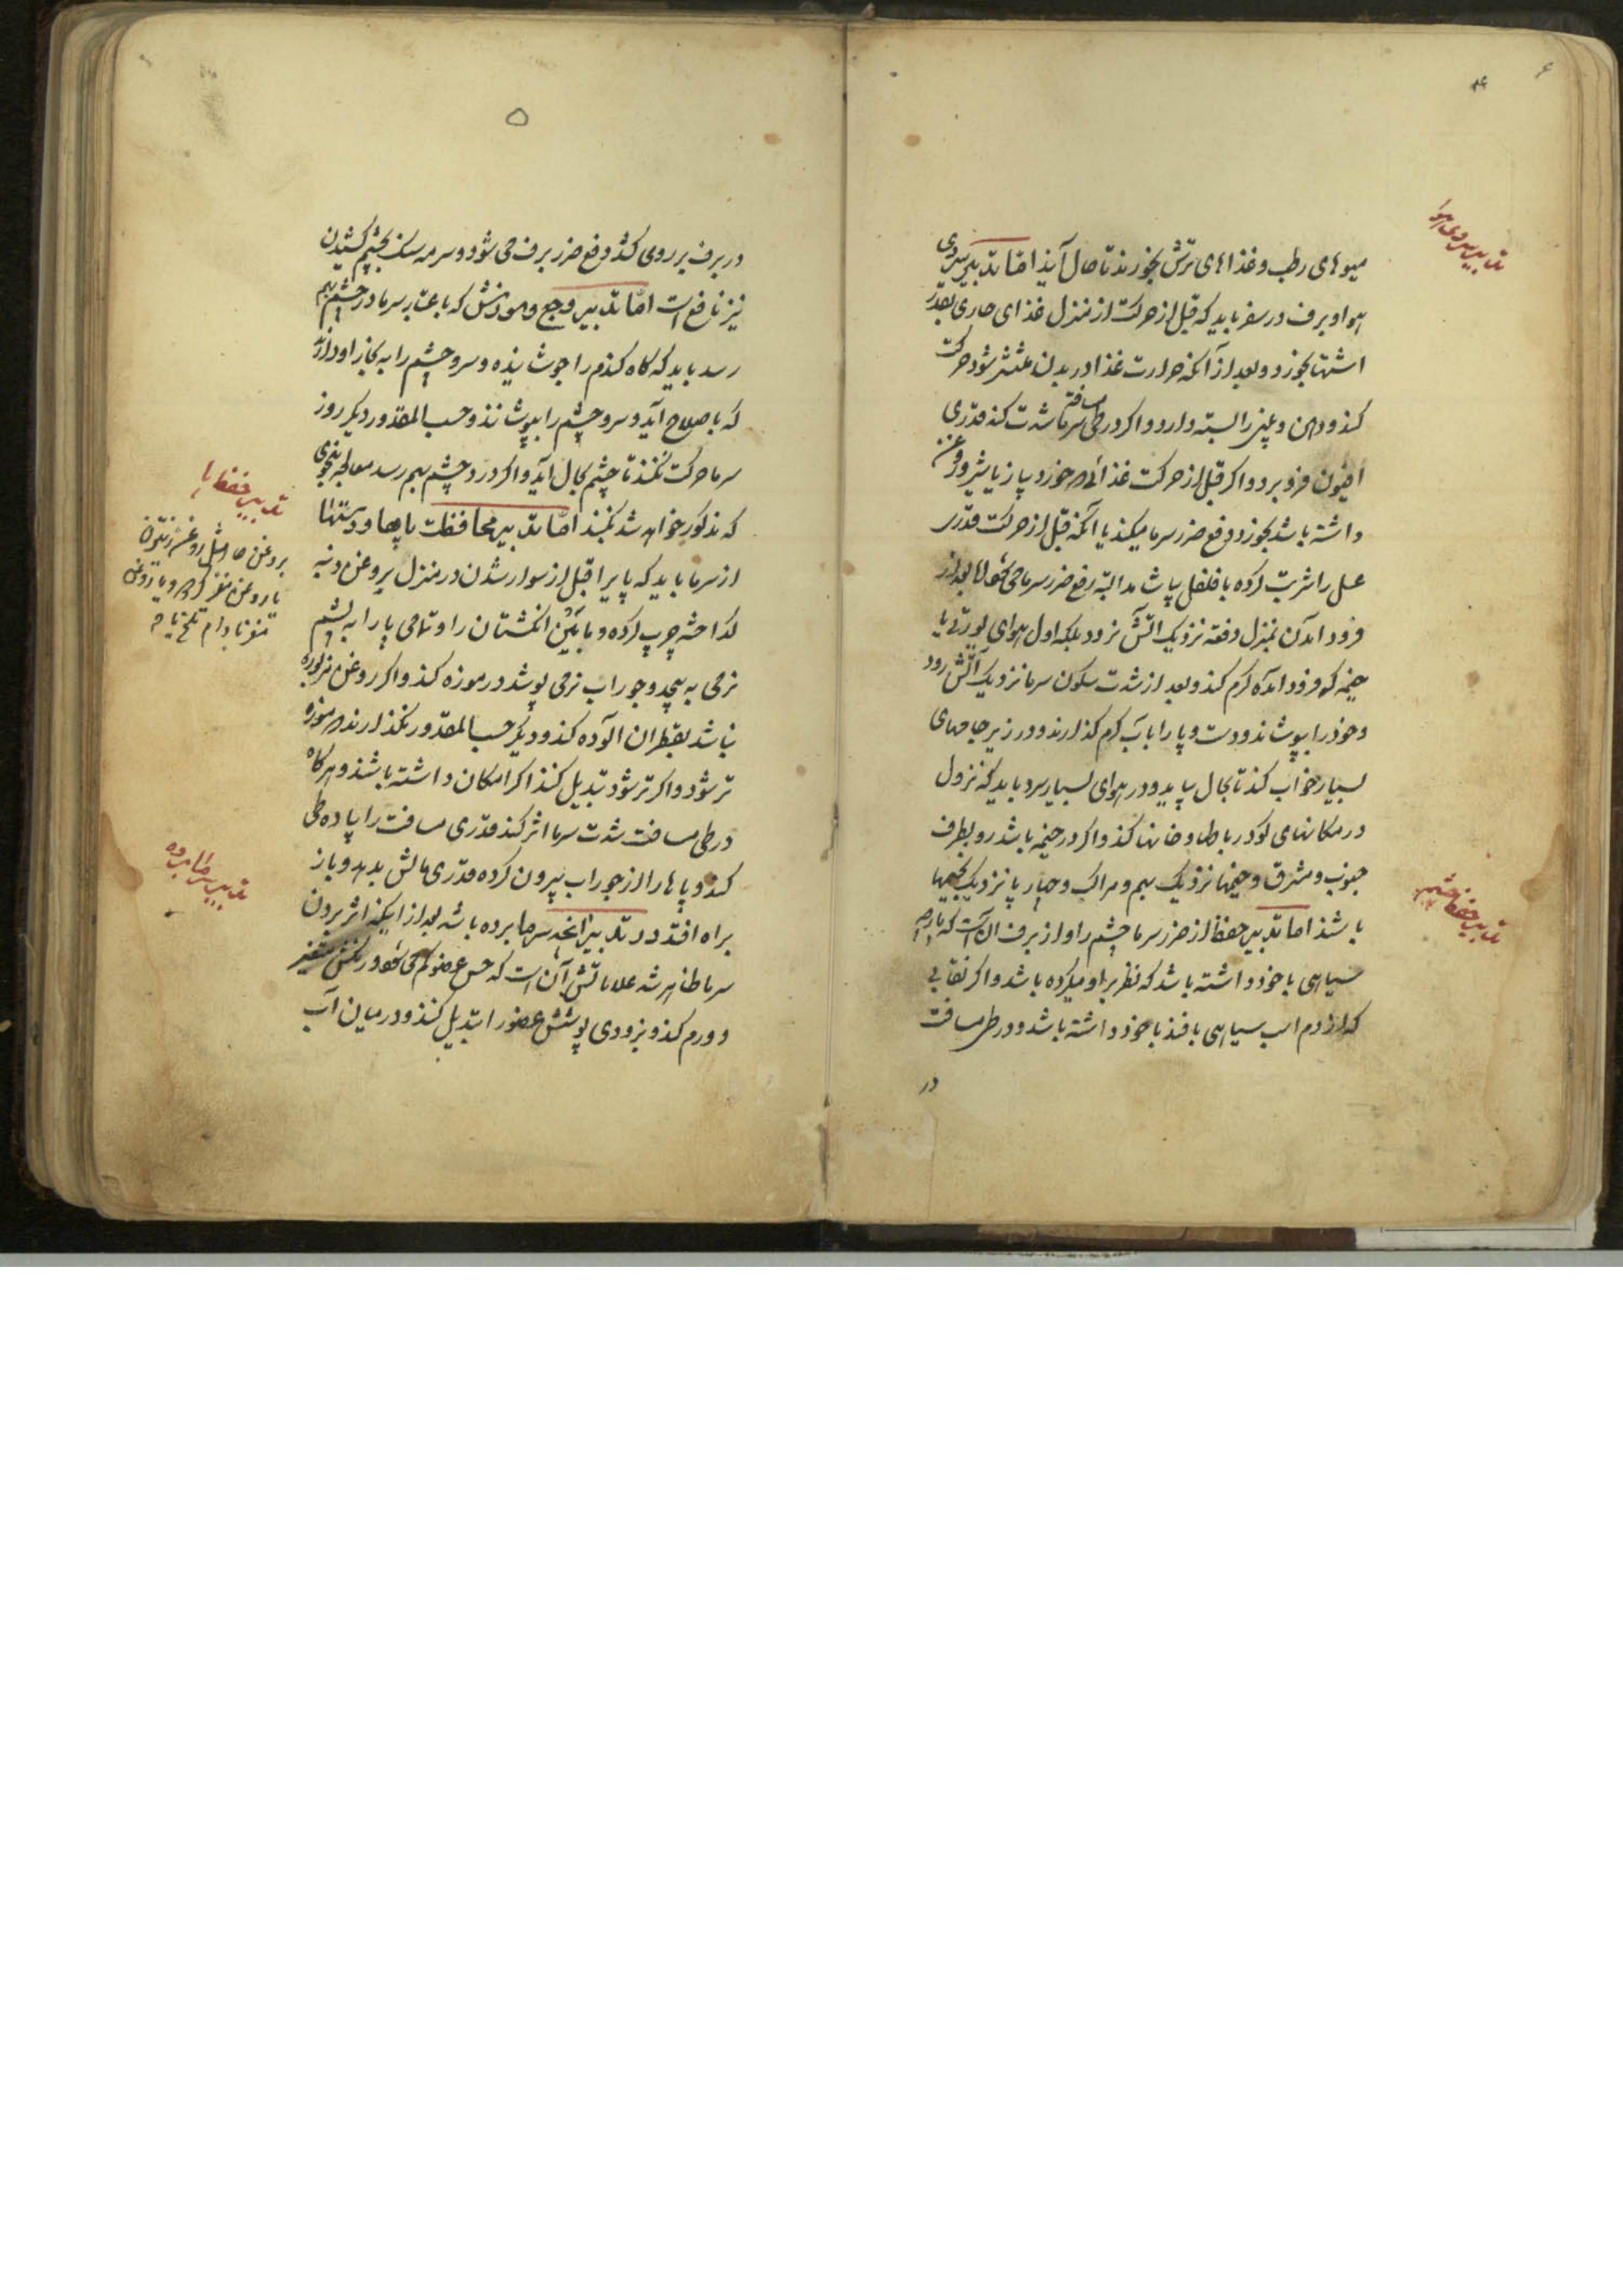 میوهای رطب و غذاهای ترش بخورند تا بحال آیند اما تدبیر سردی
هوا و برف در سفر باید که قبل از حرکت از منزل غذای حاری بقدر
اشتها بخورد و بعد از آنکه حرارت غذا در بدن منتشر شود حرکت
کند و دهن و بینی را بسته دارد و اگر در طی مسافت سرما شدت کند قدری
افیون فرو برد و اگر قبل از حرکت غذائی خورد پیاز یا شیر و روغن
داشته باشد بخورد دفع ضرر سرما میکند یا آنکه قبل از حرکت قدری
عسل را شربت کرده با فلفل بیاشامد البته رفع ضرر سرما می کند اما بعد از
فرود آمدن بمنزل دفعة نزدیک آتش نرود بلکه اول هوای یورتی یا
خیمه که فرود آمده گرم کند و بعد از شدت سکون سرما نزدیک آتش رود
و خود را بپوشاند و دست و پا را با آب گرم گذارند و در زیر جامهای
بسیار خواب کند تا بحال بیاید و در هوای بسیار سرد باید که نزول
در مکانهای گود رباطها و خانها کند و اگر در خیمه باشد رو بطرف
جنوب و مشرق و خیمها نزدیک بهم و مراکب و چارپا نزدیک بخیمها
باشند اما تدبیر حفظ از ضرر سرما چشم را و از برف آن است که پارچه
سیاهی با خود داشته باشد که نظر بر او میکرده باشد و اگر نقابی
که از دم اسب سیاهی بافند با خود داشته باشد و در طی مسافت
در
تدبیر سردی هوا
تدبیر حفظ چشم
۵
در برف بر روی کشد دفع ضرر برف می شود و سرمه سنگ بچشم کشیدن
نیز نافع است اما تدبیر وجع و سوزش که باعث بر سرما در چشم بهم
رسد باید که کاه گندم را جوشانیده و سر و چشم را به بخار او دارند
که باصلاح آید و سر و چشم را بپوشانند و حسب المقدور دیگر روز
سرما حرکت نکنند تا چشم بحال آید و اگر درد چشم بهم رسد معالجه بنحوی
که مذکور خواهد شد بکنند اما تدبیر محافظت پایها و دستها
از سرما باید که پا را قبل از سوار شدن در منزل بروغن دنبه
گداخته چرب کرده و مابین انگشتان را و تمامی پا را به پشم
نرمی به پیچد و جوراب نرمی پوشد در موزه کند و اگر روغن مزبوره
نباشد بقطران آلوده کند و دیگر حسب المقدور نگذارند موزه
تر شود و اگر تر شود تبدیل کنند اگر امکان داشته باشند و هرگاه
در طی مسافت شدت سرما اثر کند قدری مسافت را پیاده طی
کند و پاها را از جوراب بیرون کرده قدری مالش بدهد و باز
براه افتد در تدبیر آنچه سرما برده باشد بعد از اینکه اثر بردن
سرما ظاهر شد علاماتش آن است که حس عضو کم می شود و رنگش متغیر
و ورم کند و بزودی پوشش عضو را تبدیل کنند و در میان آب
تدبیر حفظ پا
بروغن حار مثل روغن زیتون
یا روغن مغز گردو و یا روغن
مغز بادام تلخ
تدبیر سرما برده